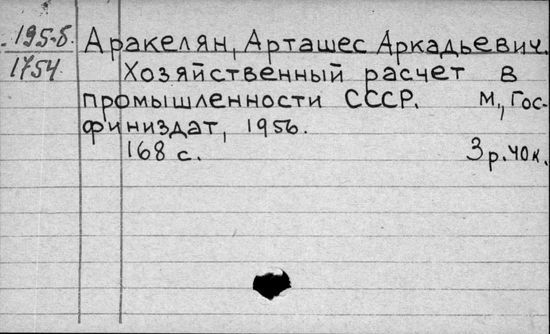 195-Б
1754
Аракелян, Арташес Аркадьевич.
Хозяйственный расчет в
промышленности СССР. М., Гос-
финиздат, 1956.
168 с. 3 р. 40 к.